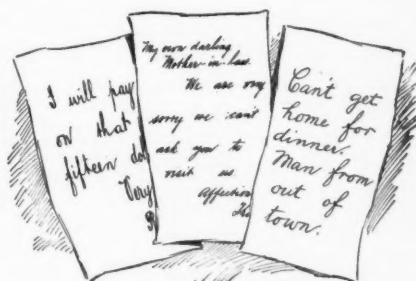 I will pay
on that
fifteen dol
Very
My own darling
Mother-in-law
We are very
sorry we can't
ask you to
visit us
Affection
Can't get
home for
dinner.
Man from
out of
town.